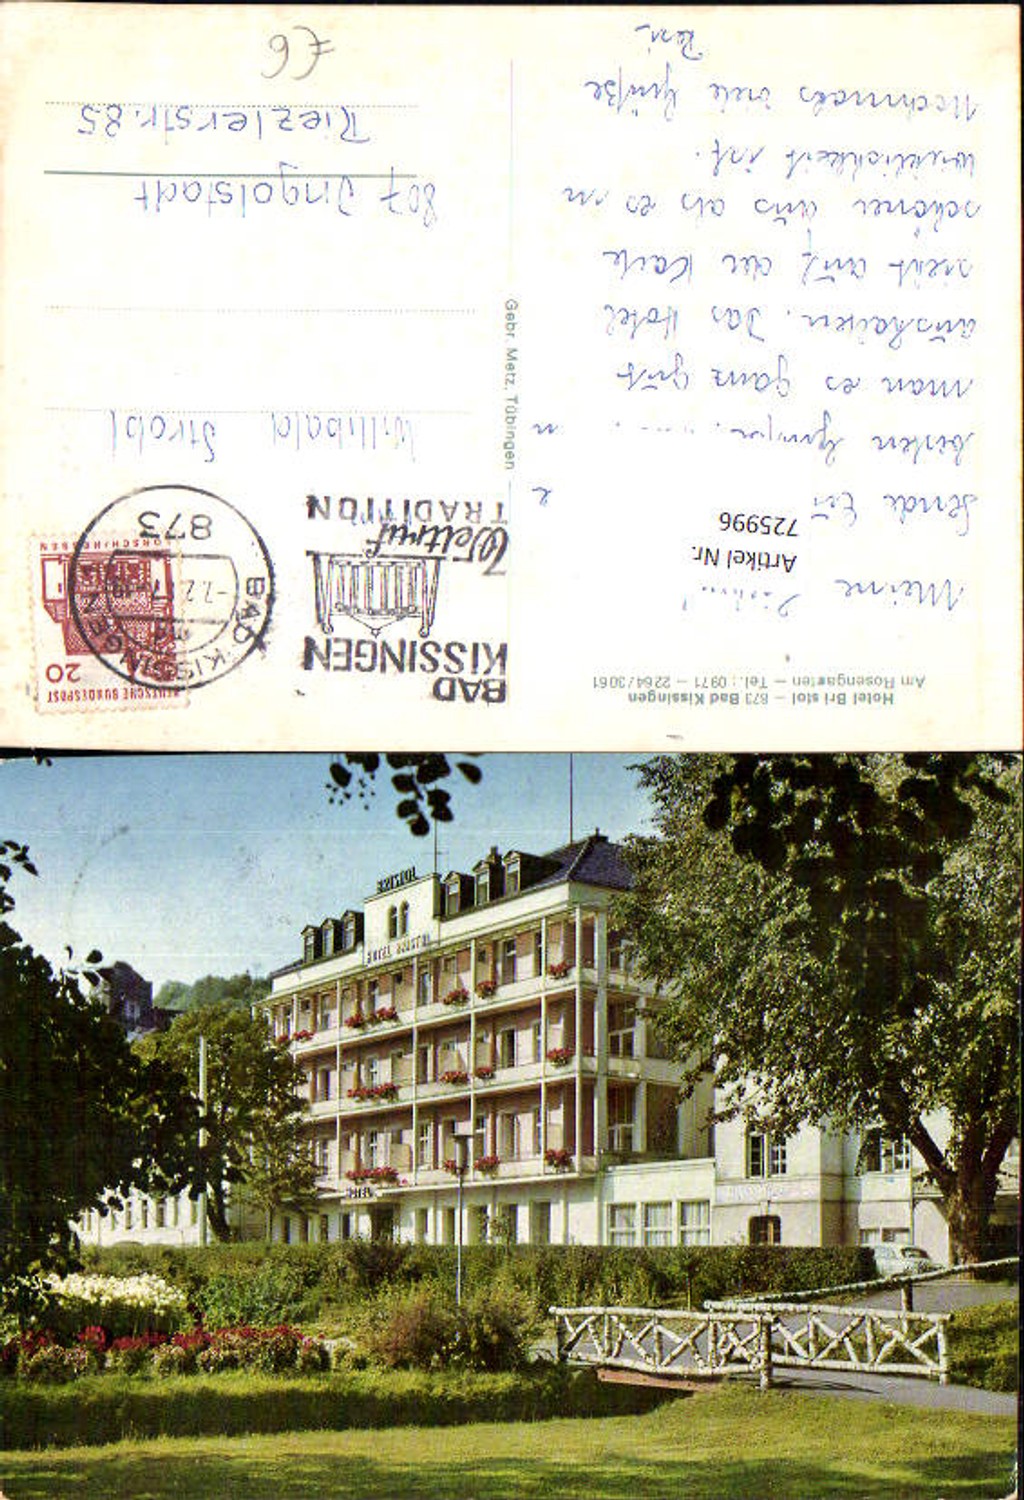 Hotel Bristol – 873 Bad Kissingen
Am Rosengarten – Tel.: 0971 – 2264/3061
Meine
Artikel Nr.
725996
sende
bisten
man es ganz gut
aushalten. Das Hotel
sieht auf der Karte
schöner aus als es in
Wirklichkeit ist.
Nochmals viele Grüße
Resi
Gebr. Metz, Tübingen
BAD
KISSINGEN
Weltruf
TRADITION
DEUTSCHE BUNDESPOST
20
LORSCH/HESSEN
BAD KISSINGEN
873
Willibald Strobl
807 Ingolstadt
Riezlerstr. 85
£6
BRISTOL
HOTEL BRISTOL
HOTEL